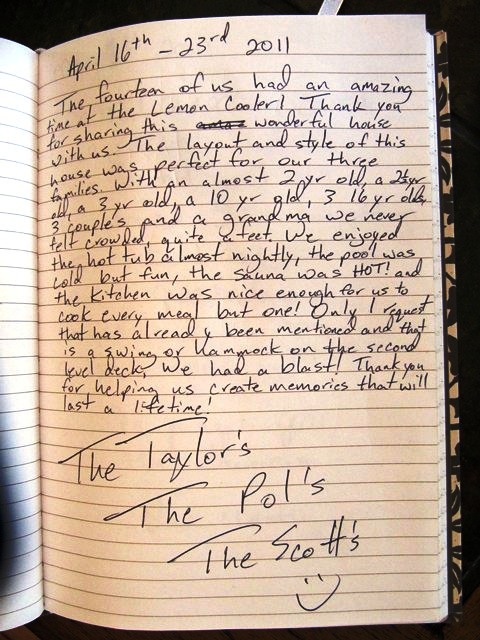 April 16th - 23rd 2011
The fourteen of us had an amazing
time at the Lemon Cooler! Thank you
for sharing this wonderful house
with us. The layout and style of this
house was perfect for our three
families. With an almost 2 yr old, a 2½ yr
old, a 3 yr old, a 10 yr old, 3 16 yr olds,
3 couples and a grandma we never
felt crowded, quite a feet. We enjoyed
the hot tub almost nightly, the pool was
cold but fun, the sauna was HOT! and
the kitchen was nice enough for us to
cook every meal but one! Only 1 request
that has already been mentioned and that
is a swing or hammock on the second
level deck. We had a blast! Thank you
for helping us create memories that will
last a lifetime!
The Taylor's
The Pol's
The Scott's